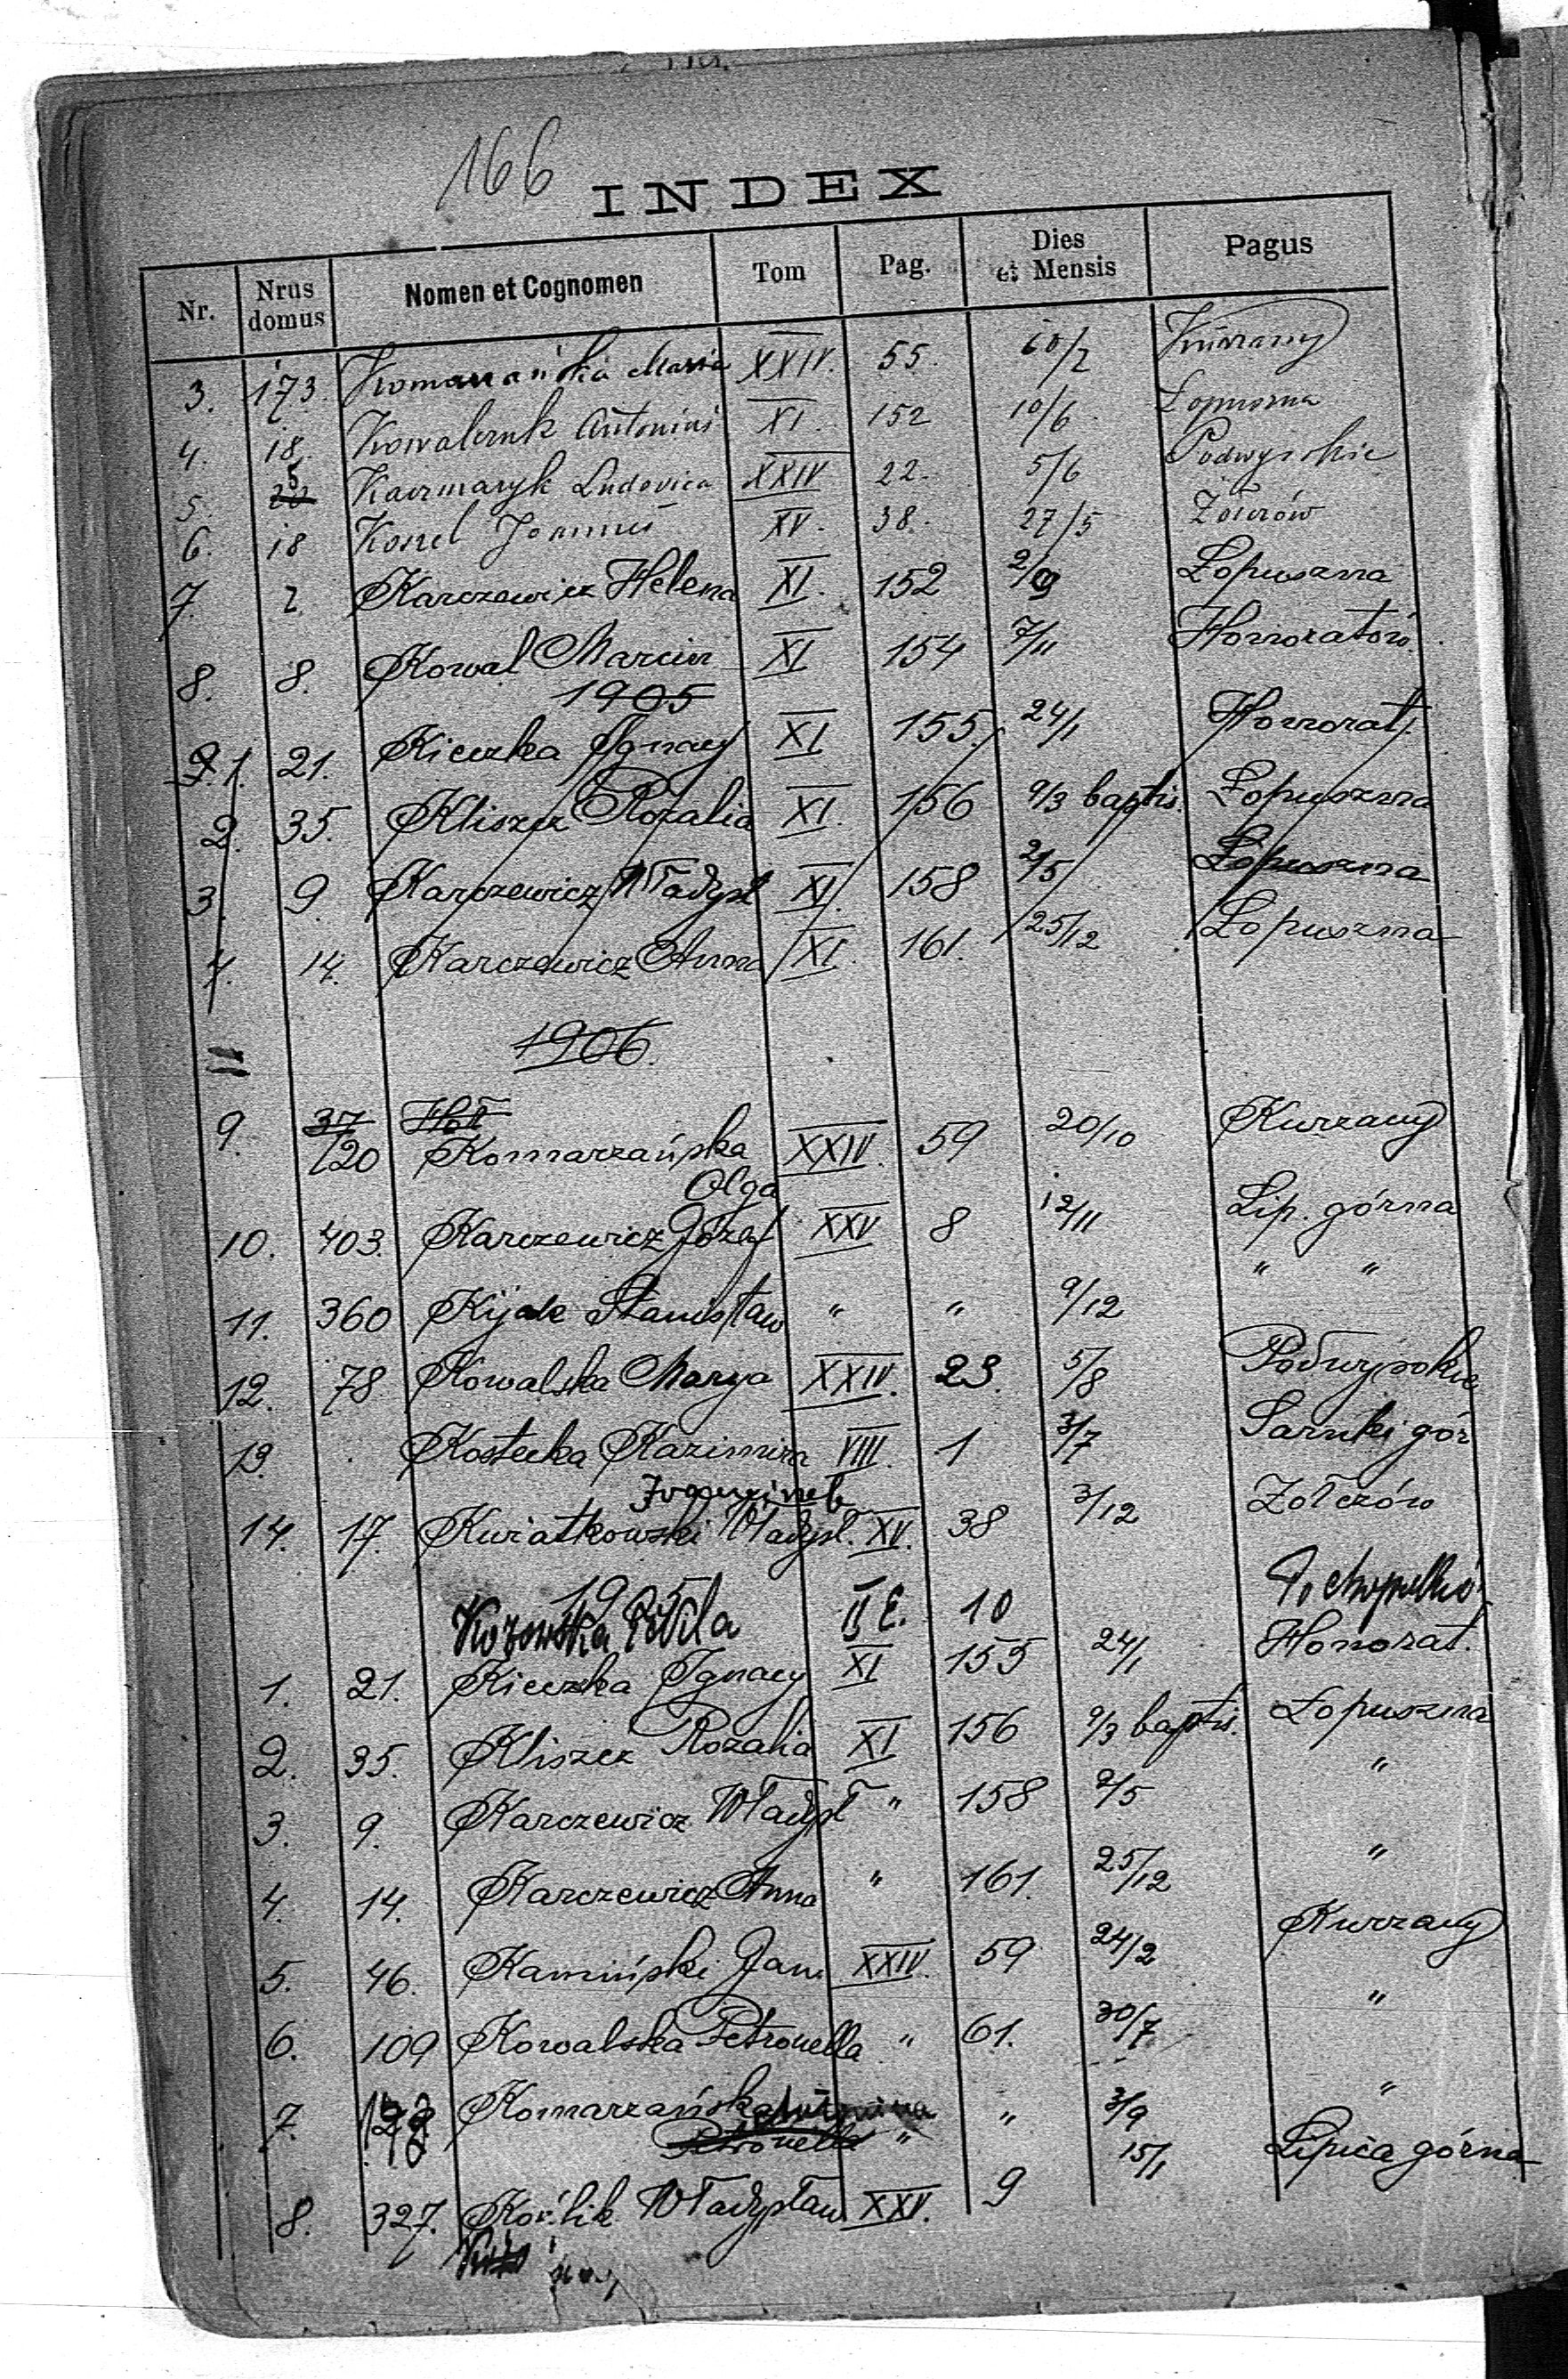 166
INDEX
Nr. Nrus domus Nomen et Cognomen Tom Pag. Dies et Mensis Pagus
3. 173. Komarańska Maria XXIV. 55. 10/2 Kurzany
4. 18. Kowalczuk Antonius XI. 152 10/6 Łopuszna
5. 5 Kaczmaryk Ludovica XXIV 22. 5/6 Podwysokie
6. 18 Kossel Joannes XV. 38. 27/5 Żołczów
7. 2. Karczewicz Helena XI. 152 2/9 Łopuszna
8. 8. Kowal Marcin XI 154 7/11 Honoratów.
1905
1. 21. Kieczka Ignacy XI 155. 24/1 Honorat.
2. 35. Kliszcz Rozalia XI. 156 9/3 baptis. Łopuszna
3 9. Karczewicz Władysł XI. 158 2/5 Łopuszna
4. 14. Karczewicz Anna XI. 161. 25/12 Łopuszna
1906.
9. 37 Hoł
120 Komarzańska XXIV. 59 20/10 Kurzany
Olga
10. 403. Karczewicz Józef XXV 8 12/11 Lip. górna
11. 360 Kijak Stanisław " " 9/12 " "
12. 78 Kowalska Marya XXIV. 23. 5/8 Podwysokie
13. Kostecka Kazimira VIII. 1 3/7 Sarnki gór
14. 17. Kwiatkowski Władysł. XV. 38 3/12 Żołczów
190
Kozowska II E. 10
1. 21. Kieczka Ignacy XI 155 24/1 Honorat.
2. 35. Kliszcz Rozalia XI 156 9/3 baptis. Łopuszna
3. 9. Karczewicz Władysł " 158 2/5 "
4. 14. Karczewicz Anna " 161. 25/12 "
5. 46. Kamiński Jan XXIV. 59 24/2 Kurzany
6. 109 Kowalska Petronella " 61. 30/7 "
7. Komarzańska Antonina " 3/9 "
Petronella "
8. 327. Koślik Władysław XXV. 9 15/1 Lipica górna